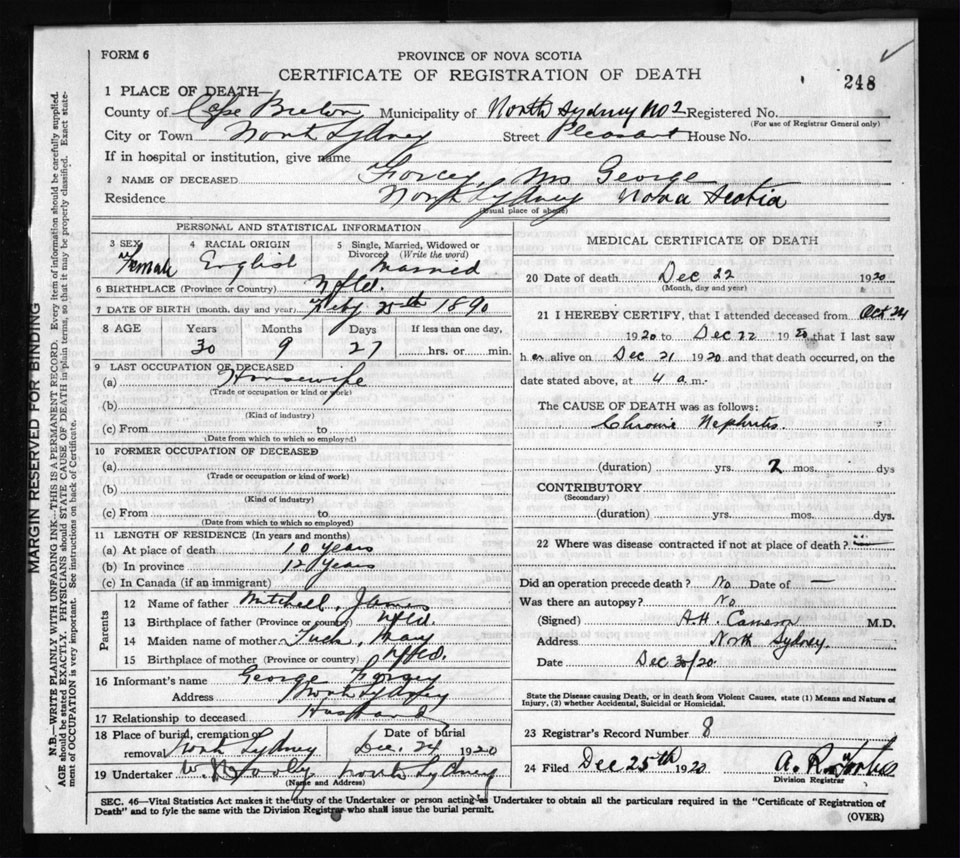 FORM 6
PROVINCE OF NOVA SCOTIA
CERTIFICATE OF REGISTRATION OF DEATH
248
1 PLACE OF DEATH—
County of Cape Breton Municipality of North Sydney No 2 Registered No.
(For use of Registrar General only)
City or Town North Sydney Street Pleasant House No.
If in hospital or institution, give name
2 NAME OF DECEASED Forcey, Mrs George
Residence North Sydney Nova Scotia
(Usual place of abode)
PERSONAL AND STATISTICAL INFORMATION
3 SEX Female
4 RACIAL ORIGIN English
5 Single, Married, Widowed or Divorced (Write the word) Married
6 BIRTHPLACE (Province or Country) Nfld.
7 DATE OF BIRTH (month, day and year) 25th 1890
8 AGE Years Months Days If less than one day,
30 9 27 hrs. or min.
9 LAST OCCUPATION OF DECEASED
(a) Housewife
(Trade or occupation or kind of work)
(b)
(Kind of industry)
(c) From to
(Date from which to which so employed)
10 FORMER OCCUPATION OF DECEASED
(a)
(Trade or occupation or kind of work)
(b)
(Kind of industry)
(c) From to
(Date from which to which so employed)
11 LENGTH OF RESIDENCE (In years and months)
(a) At place of death 10 years
(b) In province 12 years
(c) In Canada (if an immigrant)
Parents
12 Name of father Mitchell, James
13 Birthplace of father (Province or country) Nfld.
14 Maiden name of mother Tuck, Mary
15 Birthplace of mother (Province or country) Nfld.
16 Informant's name George Forsey
Address North Sydney
17 Relationship to deceased Husband
18 Place of burial, cremation or removal North Sydney
Date of burial Dec. 24 1920
19 Undertaker North Sydney
(Name and Address)
MEDICAL CERTIFICATE OF DEATH
20 Date of death Dec 22 1920
(Month, day and year)
21 I HEREBY CERTIFY, that I attended deceased from Oct 24
1920 to Dec 22 1920 that I last saw
her alive on Dec 21 1920 and that death occurred, on the
date stated above, at 4 a.m.
The CAUSE OF DEATH was as follows:
Chronic Nephritis
(duration) yrs. 2 mos. dys
CONTRIBUTORY
(Secondary)
(duration) yrs. mos. dys.
22 Where was disease contracted if not at place of death?
Did an operation precede death? No Date of —
Was there an autopsy? No
(Signed) A.H. Cameron M.D.
Address North Sydney.
Date Dec 30/20
State the Disease causing Death, or in death from Violent Causes, state (1) Means and Nature of
Injury, (2) whether Accidental, Suicidal or Homicidal.
23 Registrar's Record Number 8
24 Filed Dec 25th 1920 A. R.
Division Registrar
SEC. 46—Vital Statistics Act makes it the duty of the Undertaker or person acting as Undertaker to obtain all the particulars required in the "Certificate of Registration of
Death" and to fyle the same with the Division Registrar who shall issue the burial permit.
(OVER)
MARGIN RESERVED FOR BINDING
N.B.—WRITE PLAINLY WITH UNFADING INK—THIS IS A PERMANENT RECORD. Every item of information should be carefully supplied.
AGE should be stated EXACTLY. PHYSICIANS should STATE CAUSE OF DEATH in plain terms, so that it may be properly classified. Exact state-
ment of OCCUPATION is very important. See instructions on back of Certificate.